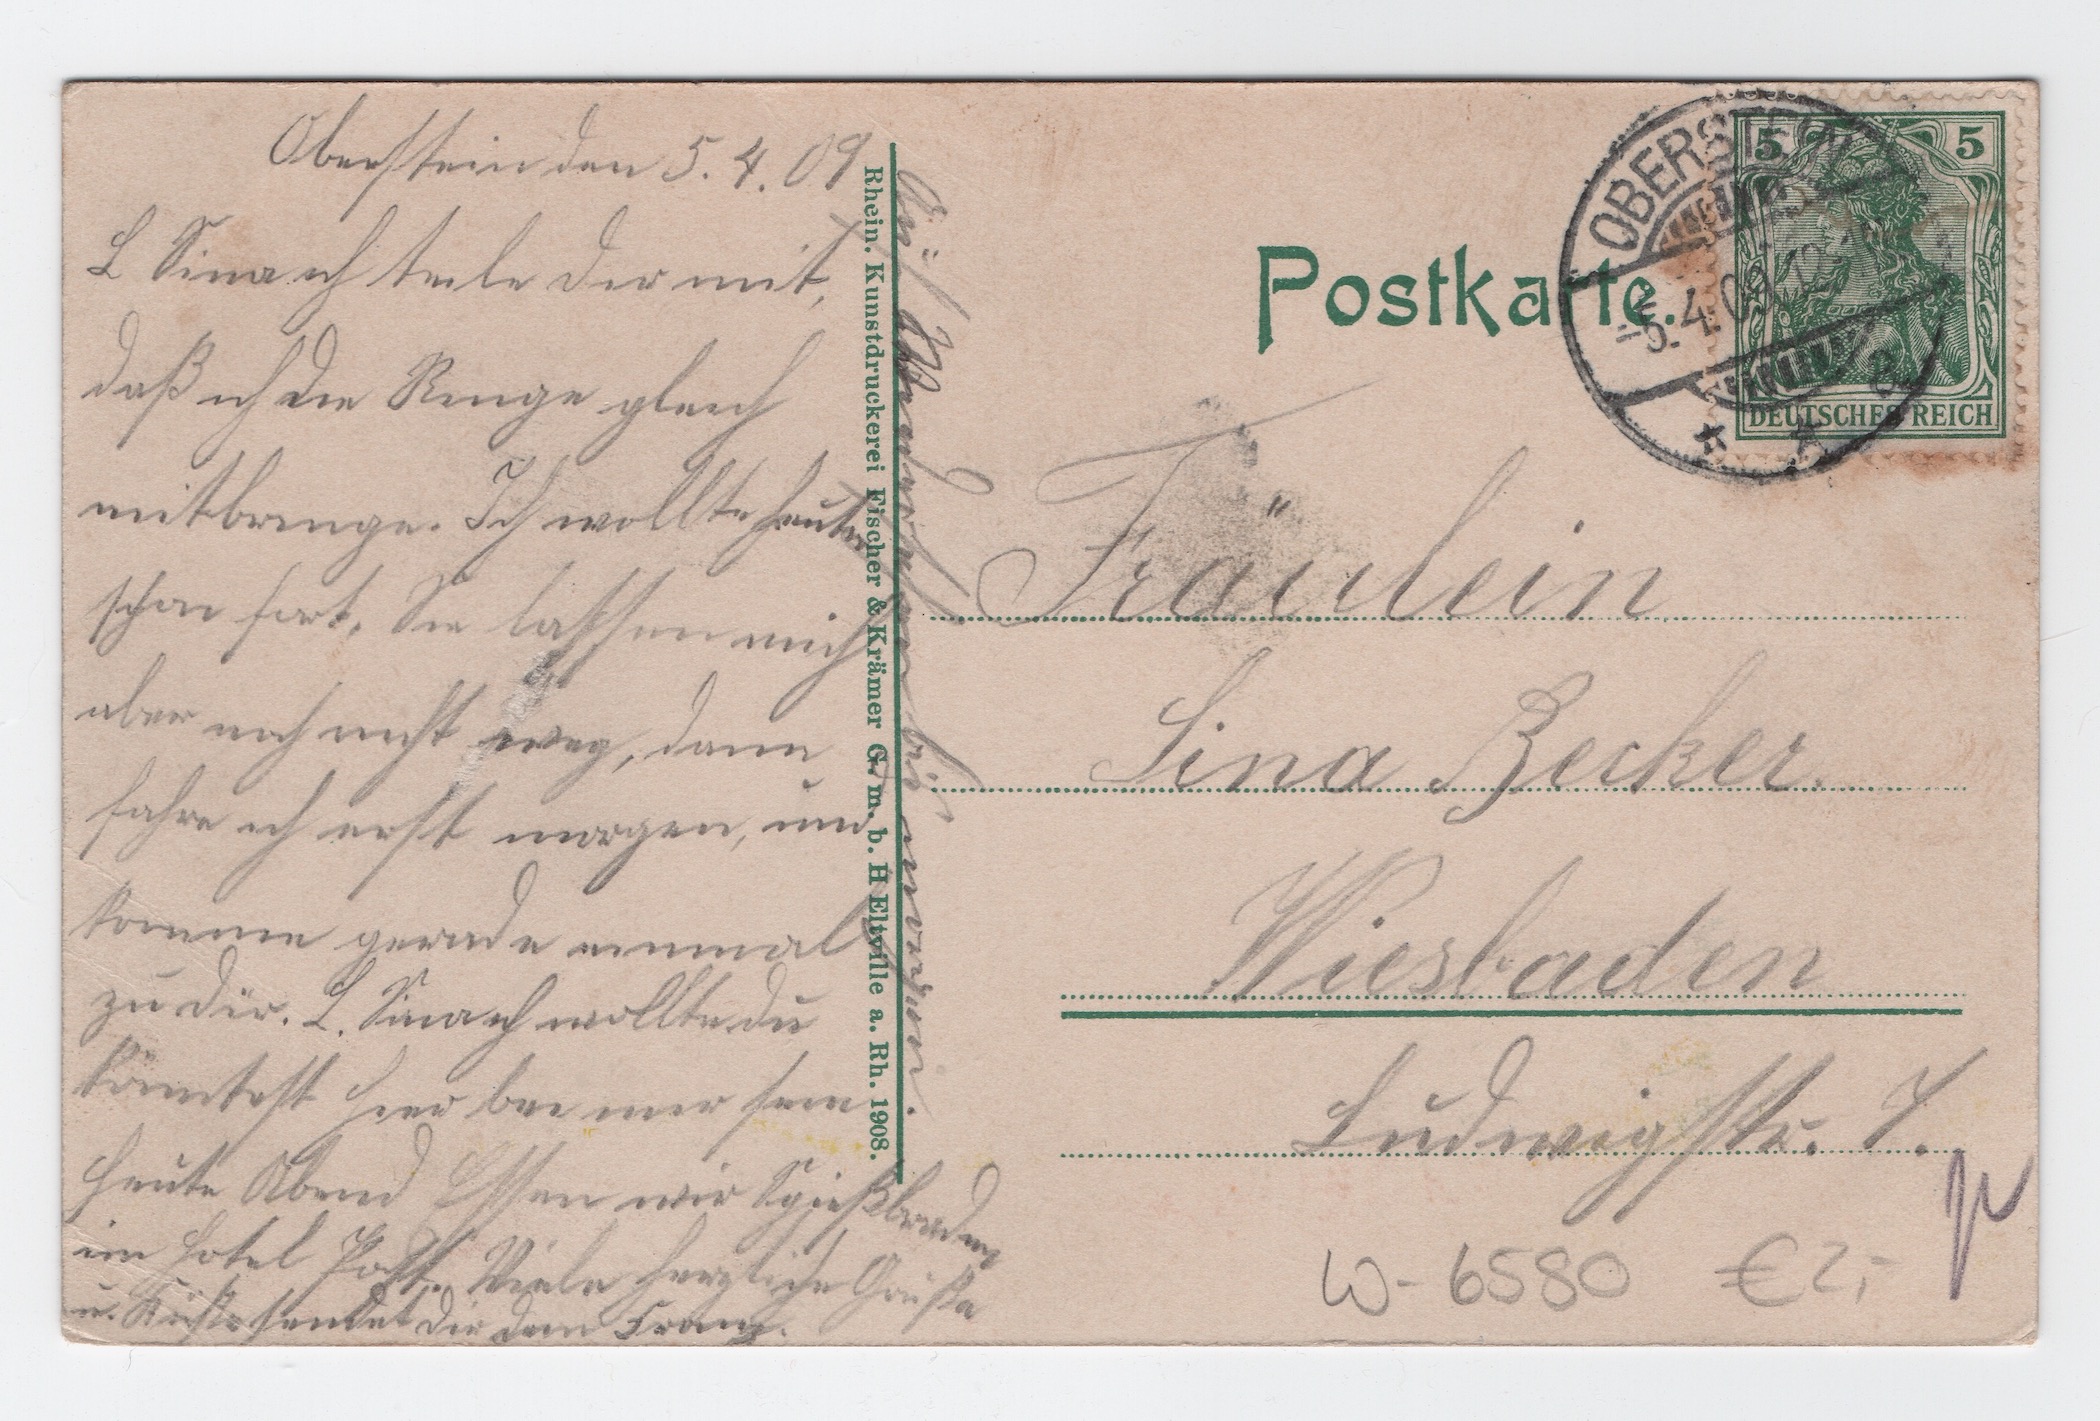 Oberstein den 5.4.09
L Lina ich teile Dir mit,
daß ich die Ringe gleich
mitbringe. Ich wollte heute
schon fort, Sie lassen mich
aber noch nicht weg, dann
fahre ich erst morgen, und
komme gerade einmal
zu dir. L. Lina ich wollte du
könntest hier bei mir sein
heute Abend Essen wir Spießbraden
im Hotel Post. Viele herzliche Grüße
u. Küsse sendet dir dein Franz.
Auf Wiedersehen bis morgen.
Rhein. Kunstdruckerei Fischer & Krämer G. m. b. H Eltville a. Rh. 1908.
Postkarte.
OBERSTEIN
5.4.09
5 5
DEUTSCHES REICH
Fräulein
Lina Becker.
Wiesbaden
Ludwigstr. 7.
W-6580 €2,-